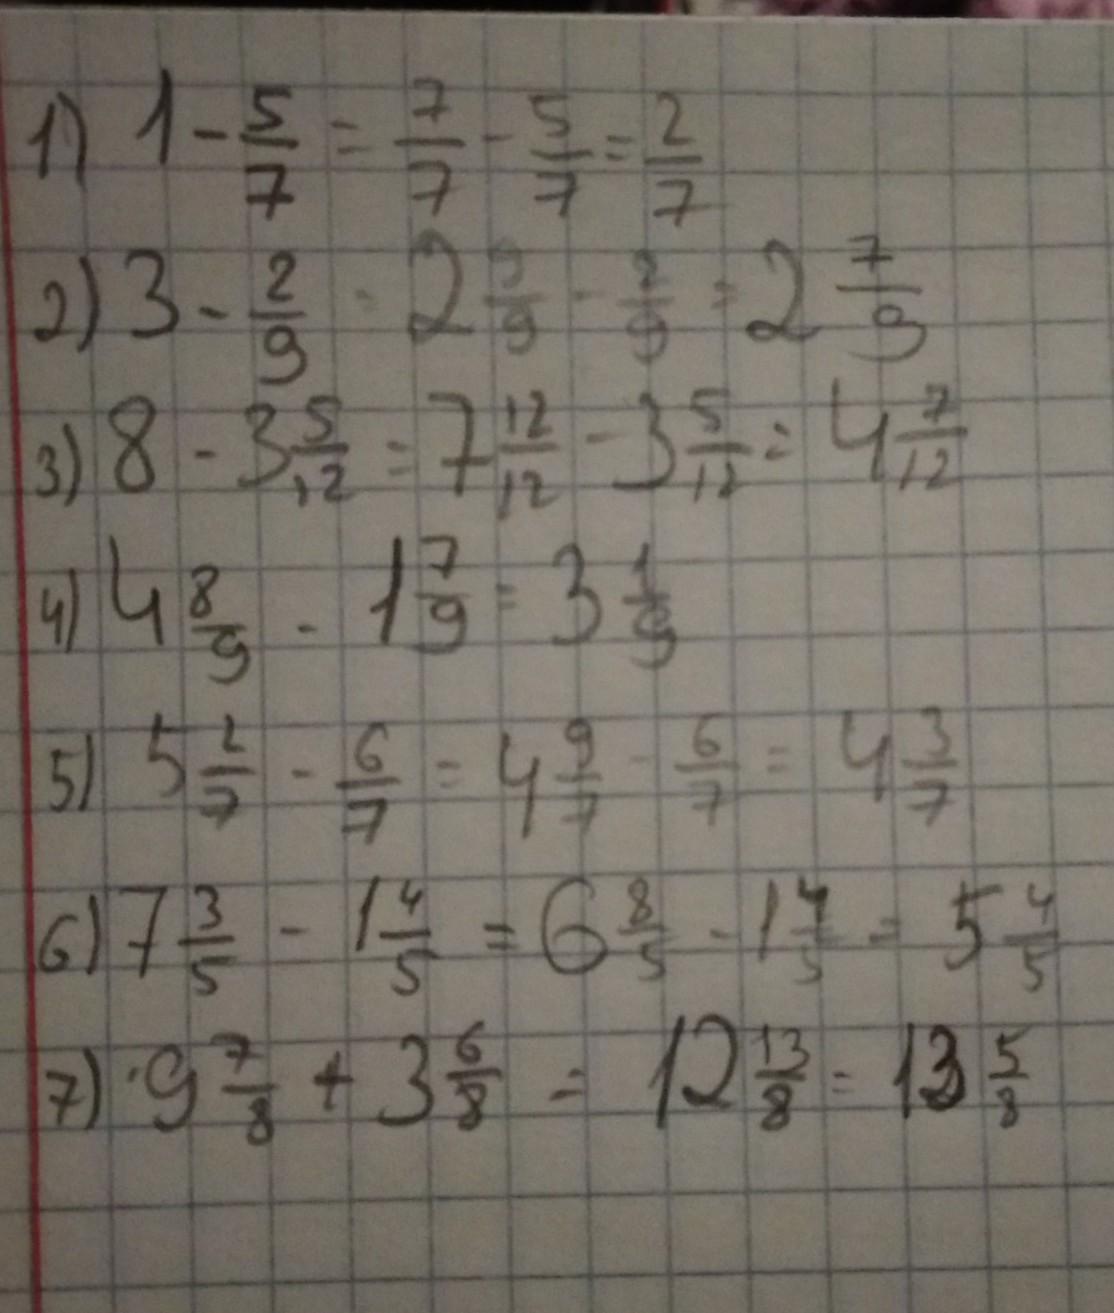 1) 1 - 5/7 = 7/7 - 5/7 = 2/7
2) 3 - 2/9 = 2 9/9 - 2/9 = 2 7/9
3) 8 - 3 5/12 = 7 12/12 - 3 5/12 = 4 7/12
4) 4 8/9 - 1 7/9 = 3 1/9
5) 5 2/7 - 6/7 = 4 9/7 - 6/7 = 4 3/7
6) 7 3/5 - 1 4/5 = 6 8/5 - 1 4/5 = 5 4/5
7) 9 7/8 + 3 6/8 = 12 13/8 = 13 5/8